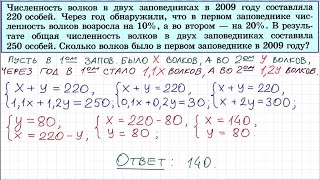 Численность волков в двух заповедниках в 2009 году составляла
220 особей. Через год обнаружили, что в первом заповеднике чис-
ленность волков возросла на 10%, а во втором — на 20%. В резуль-
тате общая численность волков в двух заповедниках составила
250 особей. Сколько волков было в первом заповеднике в 2009 году?
ПУСТЬ В 1ОМ ЗАПОВ. БЫЛО X ВОЛКОВ, А ВО 2ОМ У ВОЛКОВ,
ЧЕРЕЗ ГОД В 1ОМ СТАЛО 1,1X ВОЛКОВ, А ВО 2ОМ 1,2У ВОЛКОВ.
{X + У = 220, {X + У = 220, {X + У = 220,
1,1X + 1,2У = 250; 0,1X + 0,2У = 30; X + 2У = 300;
{У = 80; {X = 220 - 80, {X = 140,
X = 220 - У; У = 80; У = 80.
ОТВЕТ: 140.